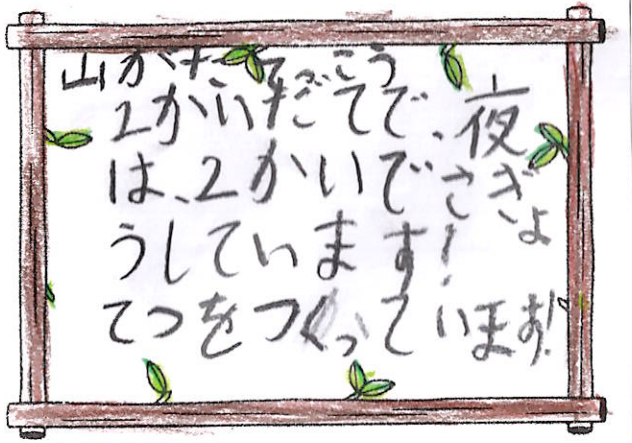 山がたてっこう
2かいだてで、夜
は、2かいでさぎょ
うしています!
てつをつくっています!